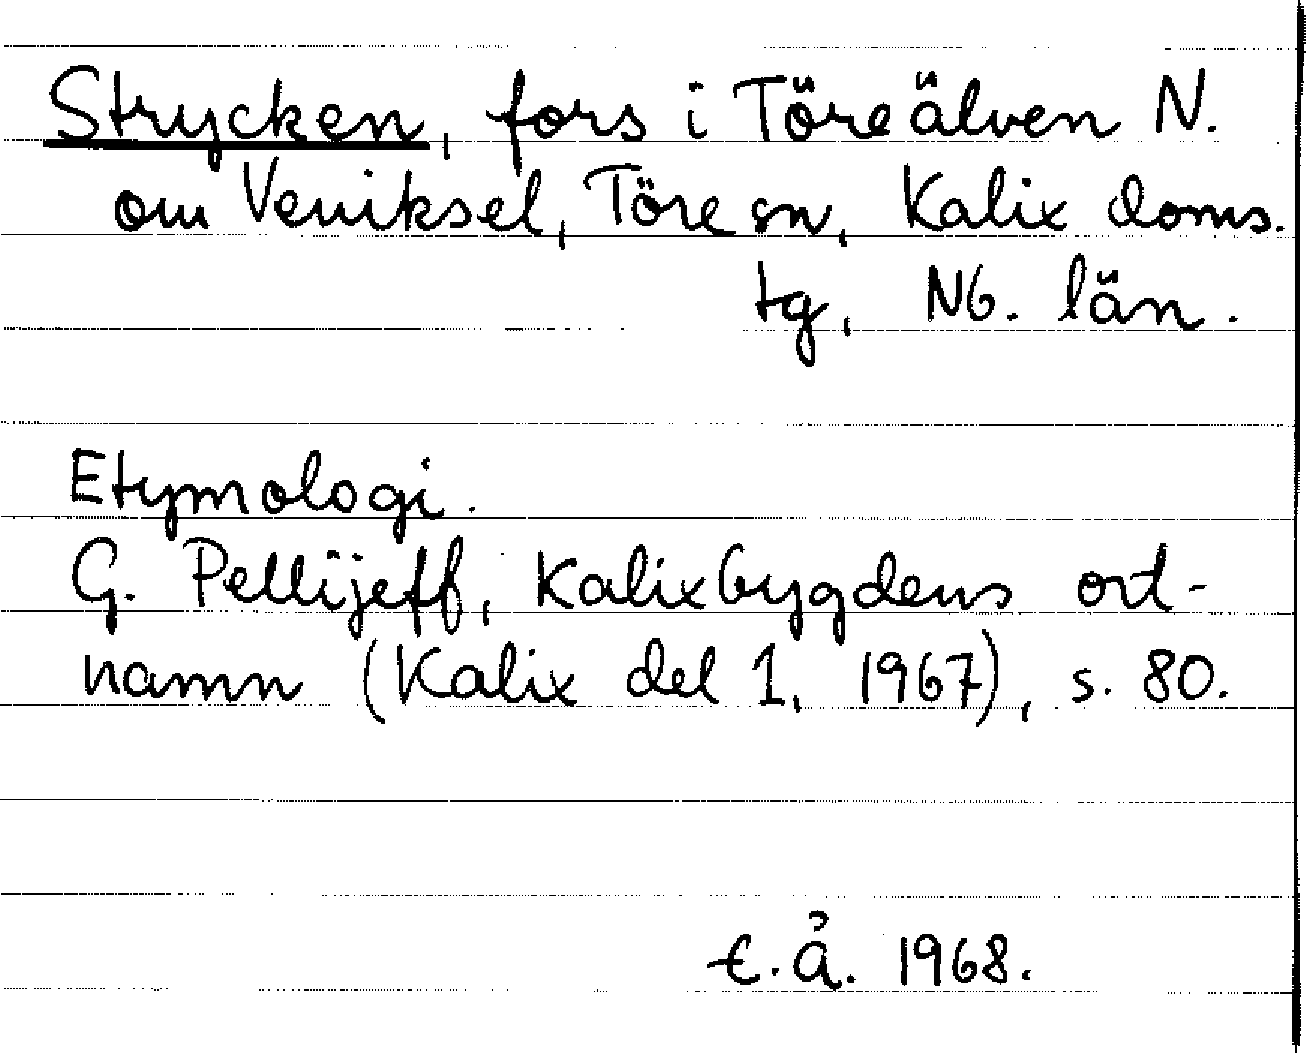 Strycken, fors i Töreälven N.
om Veniksel, Töre sn, Kalix doms.
tg, Nb. län.
Etymologi.
G. Pellijeff, Kalixbygdens ort-
namn (Kalix del 1, 1967), s. 80.
E.Å. 1968.